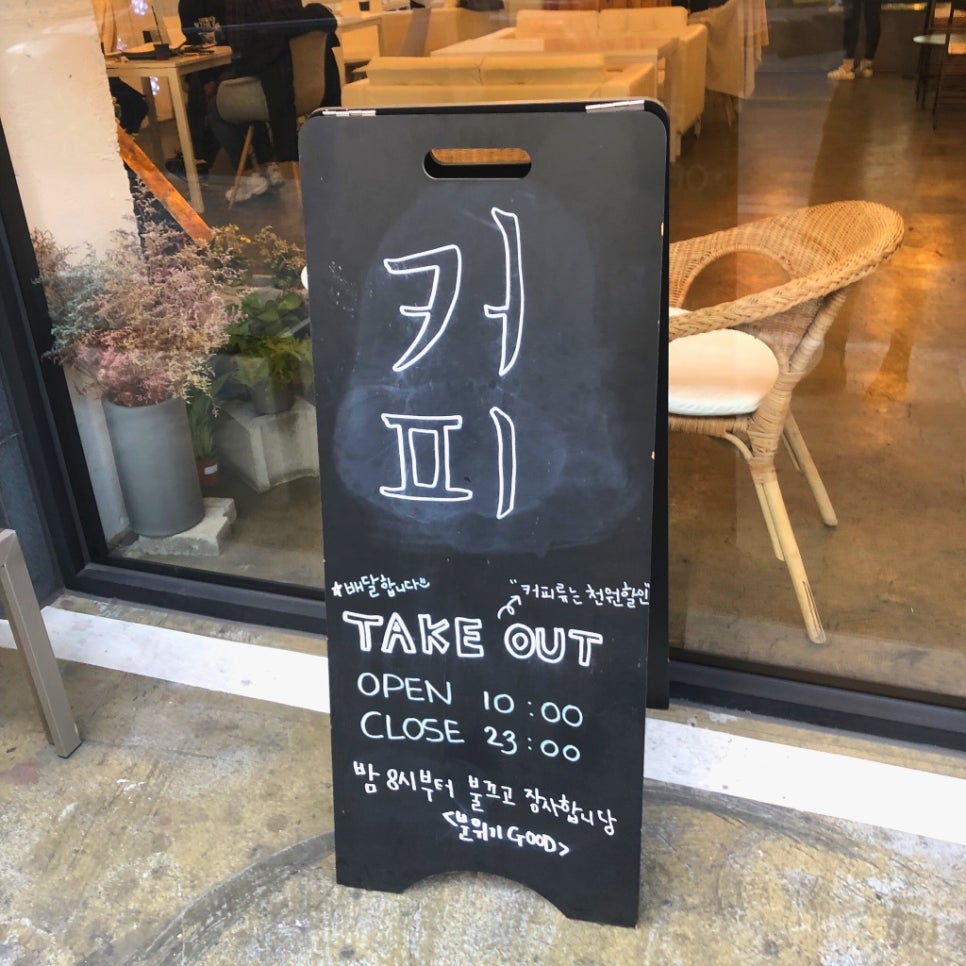 커
피
★배달합니다
"커피류는 천원할인"
TAKE OUT
OPEN 10:00
CLOSE 23:00
밤 8시부터 불끄고 장사합니당
<분위기 GOOD>